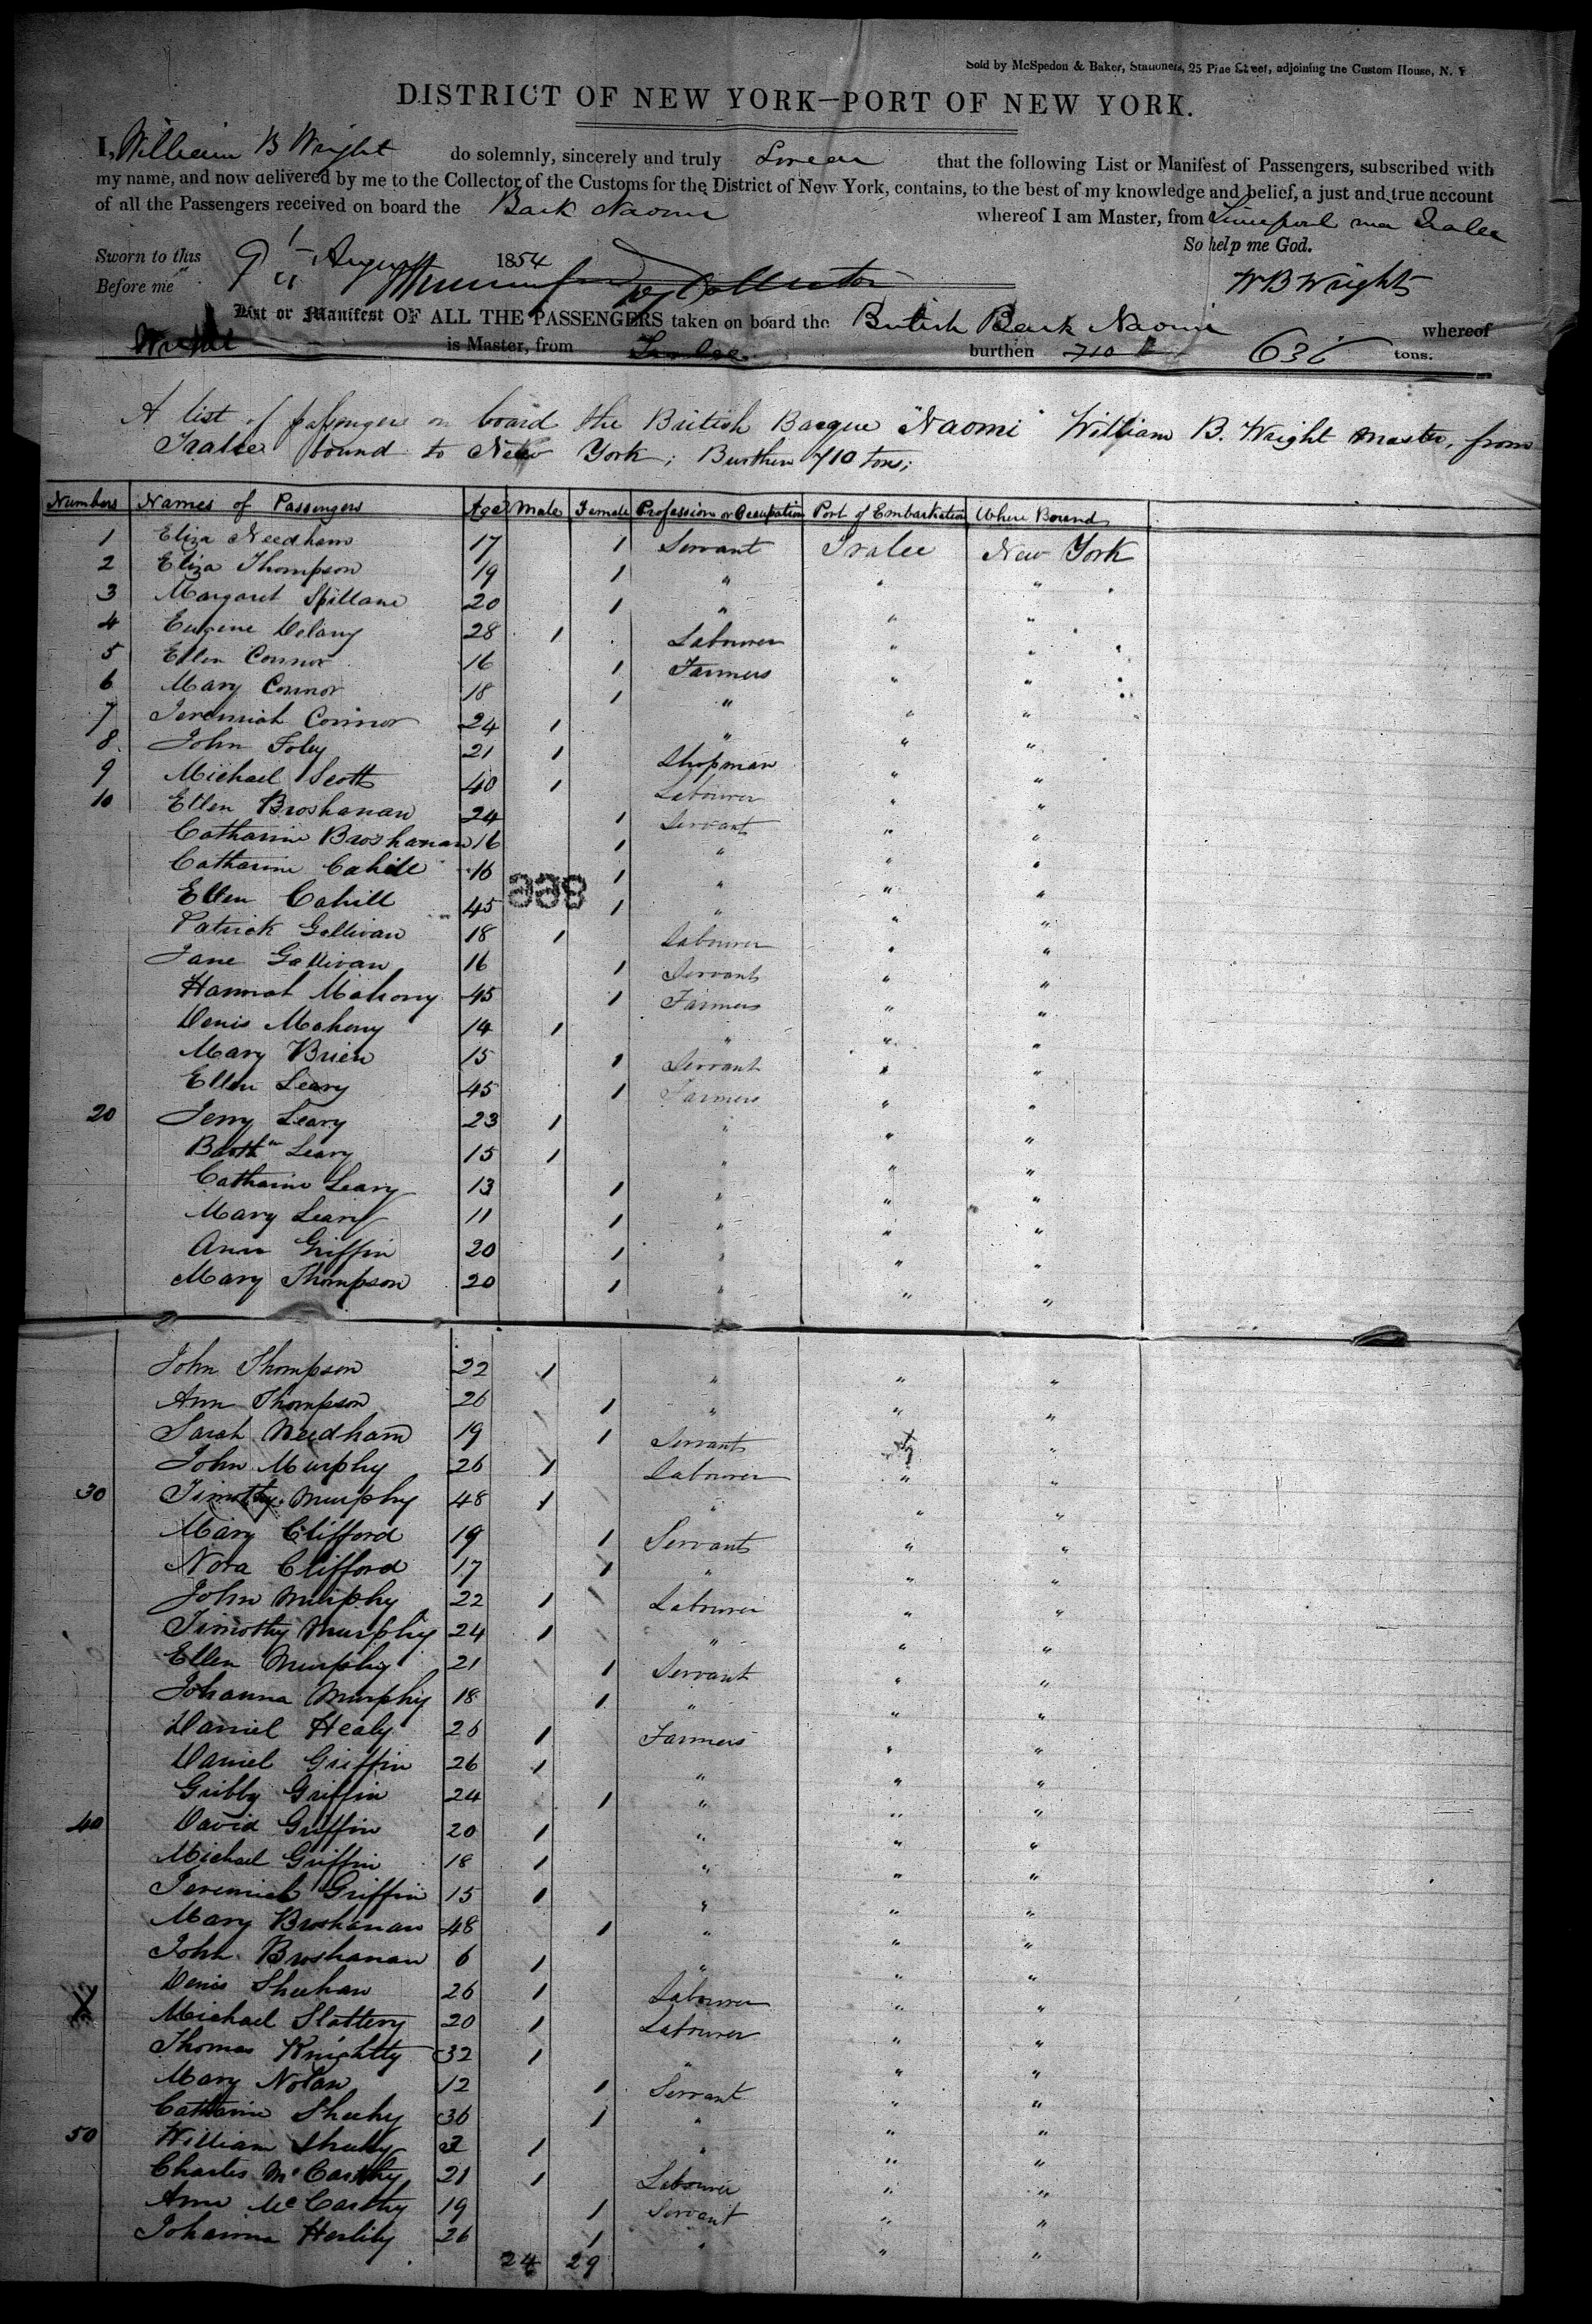 Sold by McSpedon & Baker, Stationers, 25 Pine Street, adjoining the Custom House, N. Y
DISTRICT OF NEW YORK—PORT OF NEW YORK.
I, William B Wright do solemnly, sincerely and truly Swear that the following List or Manifest of Passengers, subscribed with
my name, and now delivered by me to the Collector of the Customs for the District of New York, contains, to the best of my knowledge and belief, a just and true account
of all the Passengers received on board the Bark Naomi whereof I am Master, from Liverpool via Tralee
So help me God.
Sworn to this 9 August 1854
Before me Dy Collector W B Wright
List or Manifest OF ALL THE PASSENGERS taken on board the British Bark Naomi whereof
Wright is Master, from Tralee burthen 710 636 tons.
A list of passengers on board the British Barque "Naomi" William B. Wright Master, from
Tralee bound to New York; Burthen 710 tons;
Numbers Names of Passengers Age Male Female Profession or Occupation Port of Embarkation Where Bound
1 Eliza Needham 17 1 Servant Tralee New York
2 Eliza Thompson 19 1 " " "
3 Margaret Spillane 20 1 " " "
4 Eugene Delany 28 1 Labourer " "
5 Ellen Connor 16 1 Farmers " "
6 Mary Connor 18 1 " " "
7 Jeremiah Connor 24 1 " " "
8. John Foley 21 1 Shopman " "
9 Michael Scott 40 1 Labourer " "
10 Ellen Broshanan 24 1 Servant " "
Catharine Broshanan 16 1 " " "
Catharine Cahill 16 1 " " "
866
Ellen Cahill 45 1 " " "
Patrick Gallivan 18 1 Labourer " "
Jane Gallivan 16 1 Servant " "
Hannah Mahony 45 1 Farmers " "
Denis Mahony 14 1 " " "
Mary Brien 15 1 Servant " "
Ellen Leary 45 1 Farmers " "
20 Jerry Leary 23 1 " " "
Barthw Leary 15 1 " " "
Catharine Leary 13 1 " " "
Mary Leary 11 1 " " "
Ann Griffin 20 1 " " "
Mary Thompson 20 1 " " "
John Thompson 22 1 " " "
Ann Thompson 26 1 " " "
Sarah Needham 19 1 Servants "
John Murphy 26 1 Labourer " "
30 Timothy Murphy 48 1 " " "
Mary Clifford 19 1 Servants " "
Nora Clifford 17 1 " " "
John Murphy 22 1 Labourer " "
Timothy Murphy 24 1 " " "
Ellen Murphy 21 1 Servant " "
Johanna Murphy 18 1 " " "
Daniel Healy 26 1 Farmers " "
Daniel Griffin 26 1 " " "
Gribby Griffin 24 1 " " "
40 David Griffin 20 1 " " "
Michael Griffin 18 1 " " "
Jeremiah Griffin 15 1 " " "
Mary Broshanan 48 1 " " "
John Broshanan 6 1 " " "
Denis Sheehan 26 1 Labourer " "
X Michael Slattery 20 1 Labourer " "
Thomas Knightly 32 1 " " "
Mary Nolan 12 1 Servant " "
Catharine Sheehy 36 1 " " "
50 William Sheehy 2 1 " " "
Charles McCarthy 21 1 Labourer " "
Ann McCarthy 19 1 Servant " "
Johanna Herlihy 26 1 " " "
24 29